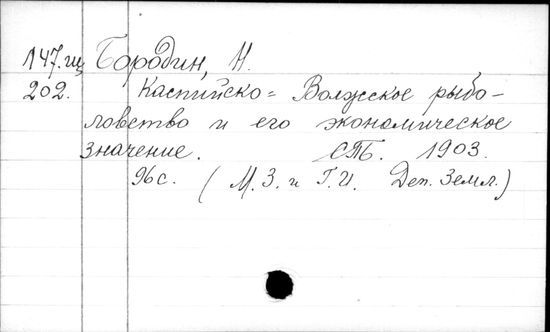 147.щ Бородин, Н.
202. Каспийско= Волжское рыбо-
ловство и его экономическое
значение. СПБ. 1903.
96 с. (М. З. и Г. И. Деп. Земл.)